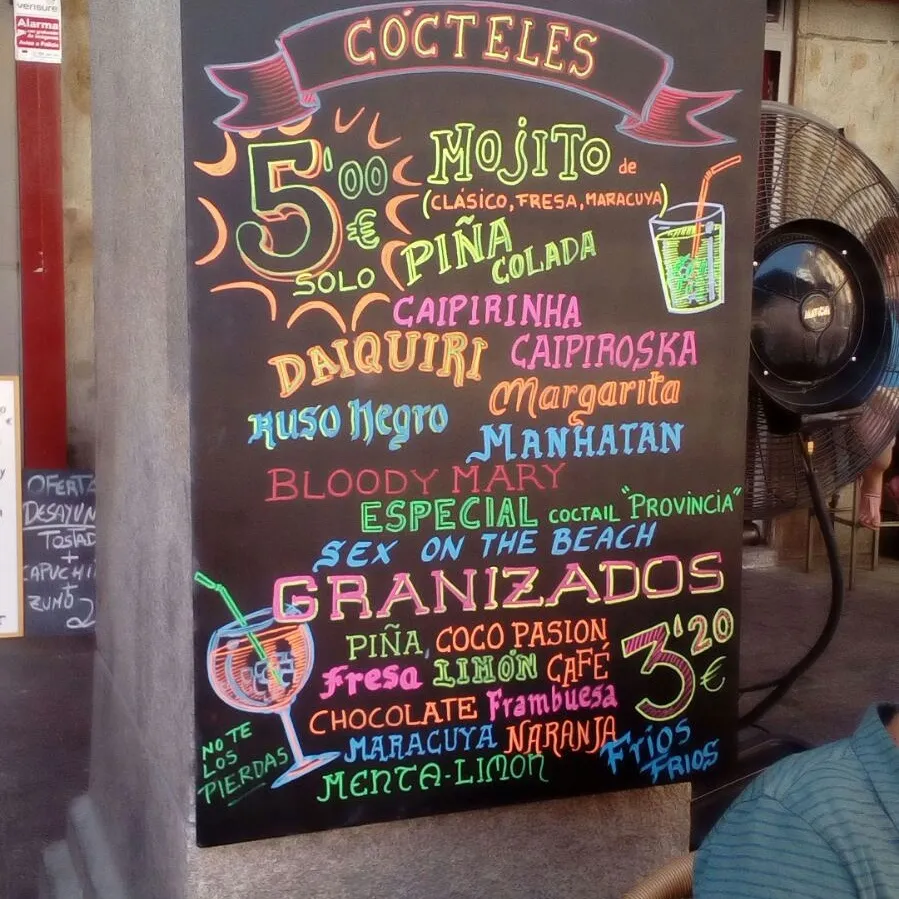 verisure
Alarma
CÓCTELES
5'00 €
SOLO
MOJITO de
(CLÁSICO, FRESA, MARACUYA)
PIÑA COLADA
CAIPIRINHA
DAIQUIRI CAIPIROSKA
Margarita
RUSO NEGRO
MANHATAN
BLOODY MARY
ESPECIAL COCTAIL "PROVINCIA"
SEX ON THE BEACH
GRANIZADOS
3'20 €
PIÑA, COCO PASION
Fresa LIMÓN CAFÉ
CHOCOLATE Frambuesa
MARACUYA NARANJA
MENTA-LIMON
FRÍOS
FRIOS
NO TE
LOS
PIERDAS
OFERTA
DESAYUN
TOSTAD
+
CAPUCHI
+
ZUMO 2